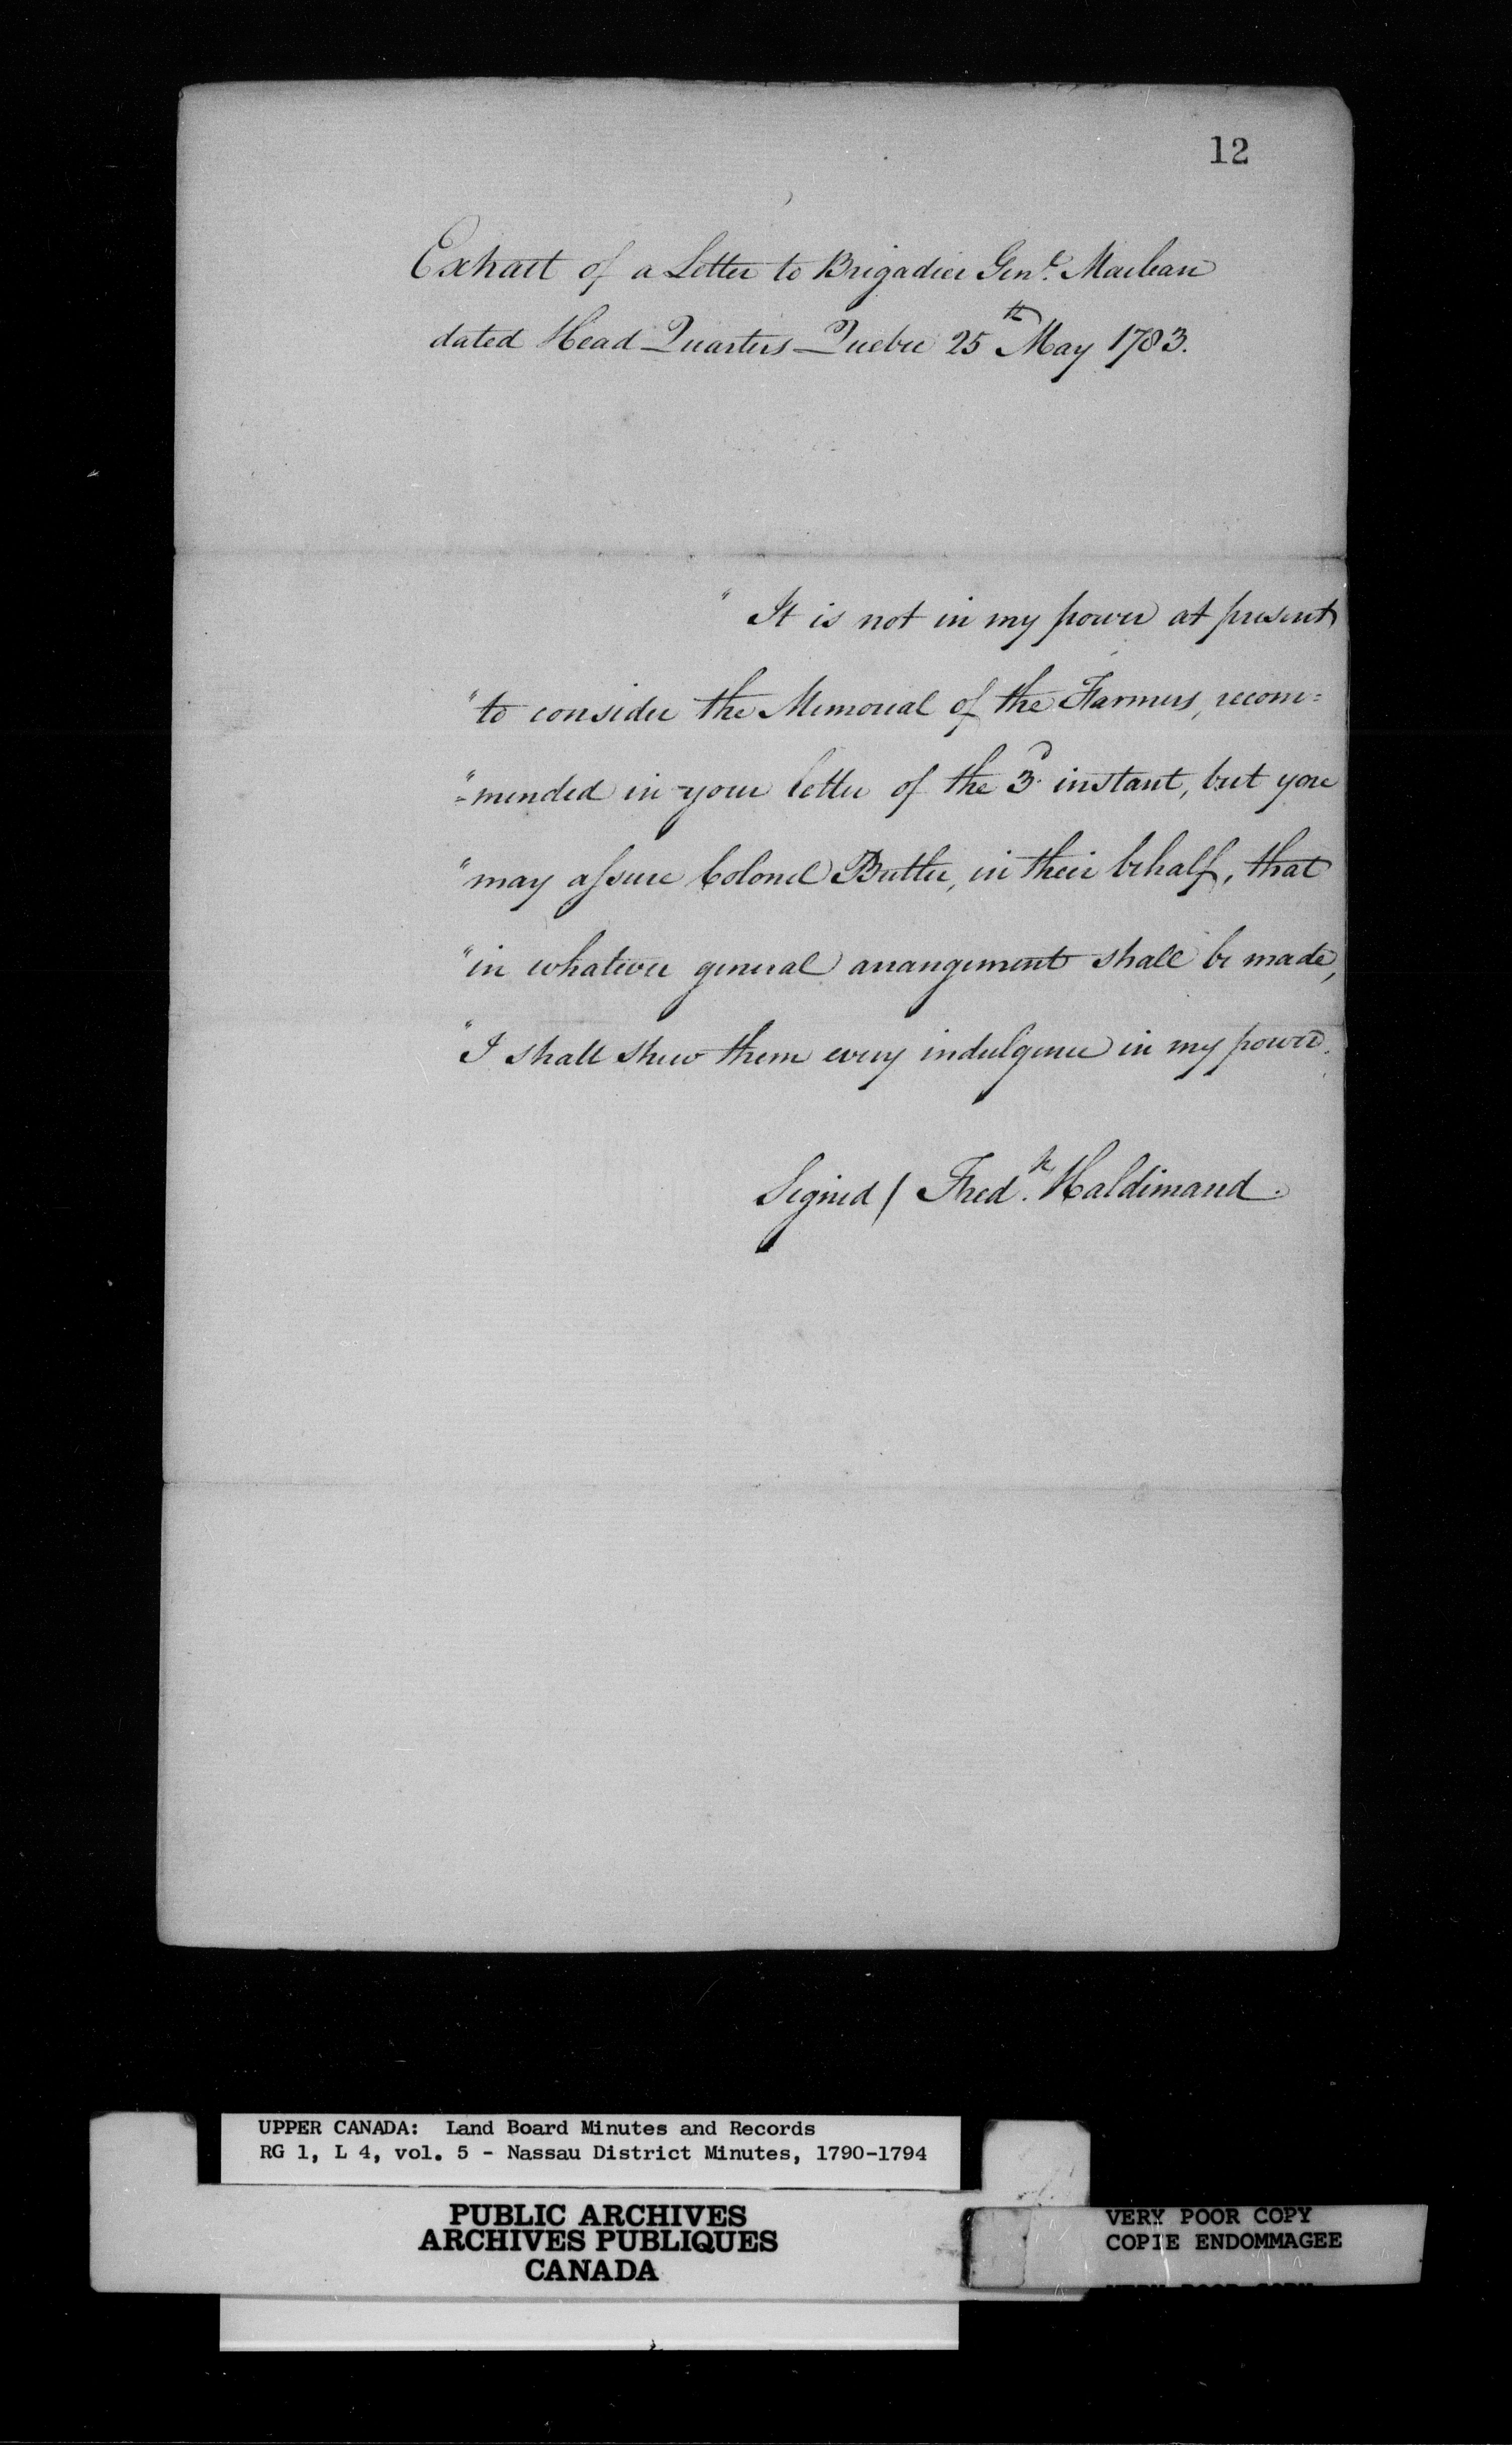 12
Extract of a Letter to Brigadier Genl. Maclean
dated Head Quarters Quebec 25th May 1783.
" It is not in my power at present
" to consider the Memorial of the Farmers, recom=
" =mended in your letter of the 3d. instant, but you
" may assure Colonel Butler, in their behalf, that
" in whatever general arrangement shall be made,
" I shall shew them every indulgence in my power.
Signed / Fredk. Haldimand.
UPPER CANADA: Land Board Minutes and Records
RG 1, L 4, vol. 5 - Nassau District Minutes, 1790-1794
PUBLIC ARCHIVES
ARCHIVES PUBLIQUES
CANADA
VERY POOR COPY
COPIE ENDOMMAGEE
VERY POOR COPY